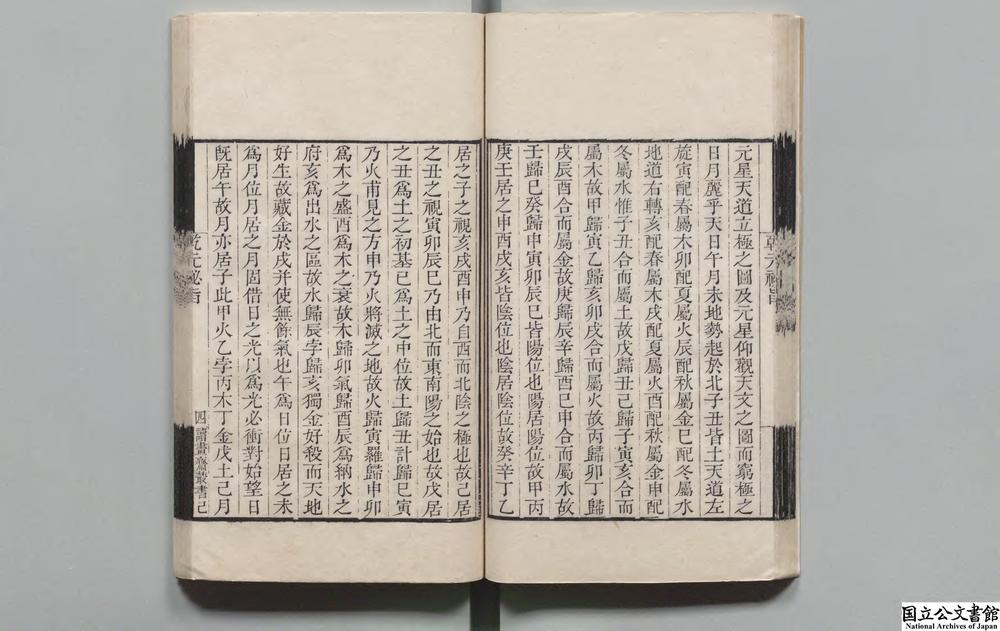 元星天道立極之圖及元星仰觀天文之圖而窮極之
日月麗乎天日午月未地勢起於北子丑皆土天道左
旋寅配春屬木卯配夏屬火辰配秋屬金巳配冬屬水
地道右轉亥配春屬木戌配夏屬火酉配秋屬金申配
冬屬水惟子丑合而屬土故戊歸丑己歸子寅亥合而
屬木故甲歸寅乙歸亥卯戌合而屬火故丙歸卯丁歸
戌辰酉合而屬金故庚歸辰辛歸酉巳申合而屬水故
壬歸巳癸歸申寅卯辰巳皆陽位也陽居陽位故甲丙
庚壬居之申酉戌亥皆陰位也陰居陰位故癸辛丁乙
居之子之視亥戌酉申乃自西而北陰之極也故己居
之丑之視寅卯辰巳乃由北而東南陽之始也故戊居
之丑爲土之初基巳爲土之中位故土歸丑計歸巳寅
乃火甫見之方申乃火將滅之地故火歸寅羅歸申卯
爲木之盛酉爲木之衰故木歸卯氣歸酉辰爲納水之
府亥爲出水之區故水歸辰孛歸亥獨金好殺而天地
好生故藏金於戌并使無餘氣也午爲日位日居之未
爲月位月居之月固借日之光以爲光必衝對始望日
旣居午故月亦居子此甲火乙孛丙木丁金戊土己月
乾元秘旨
四 讀畫齋叢書己